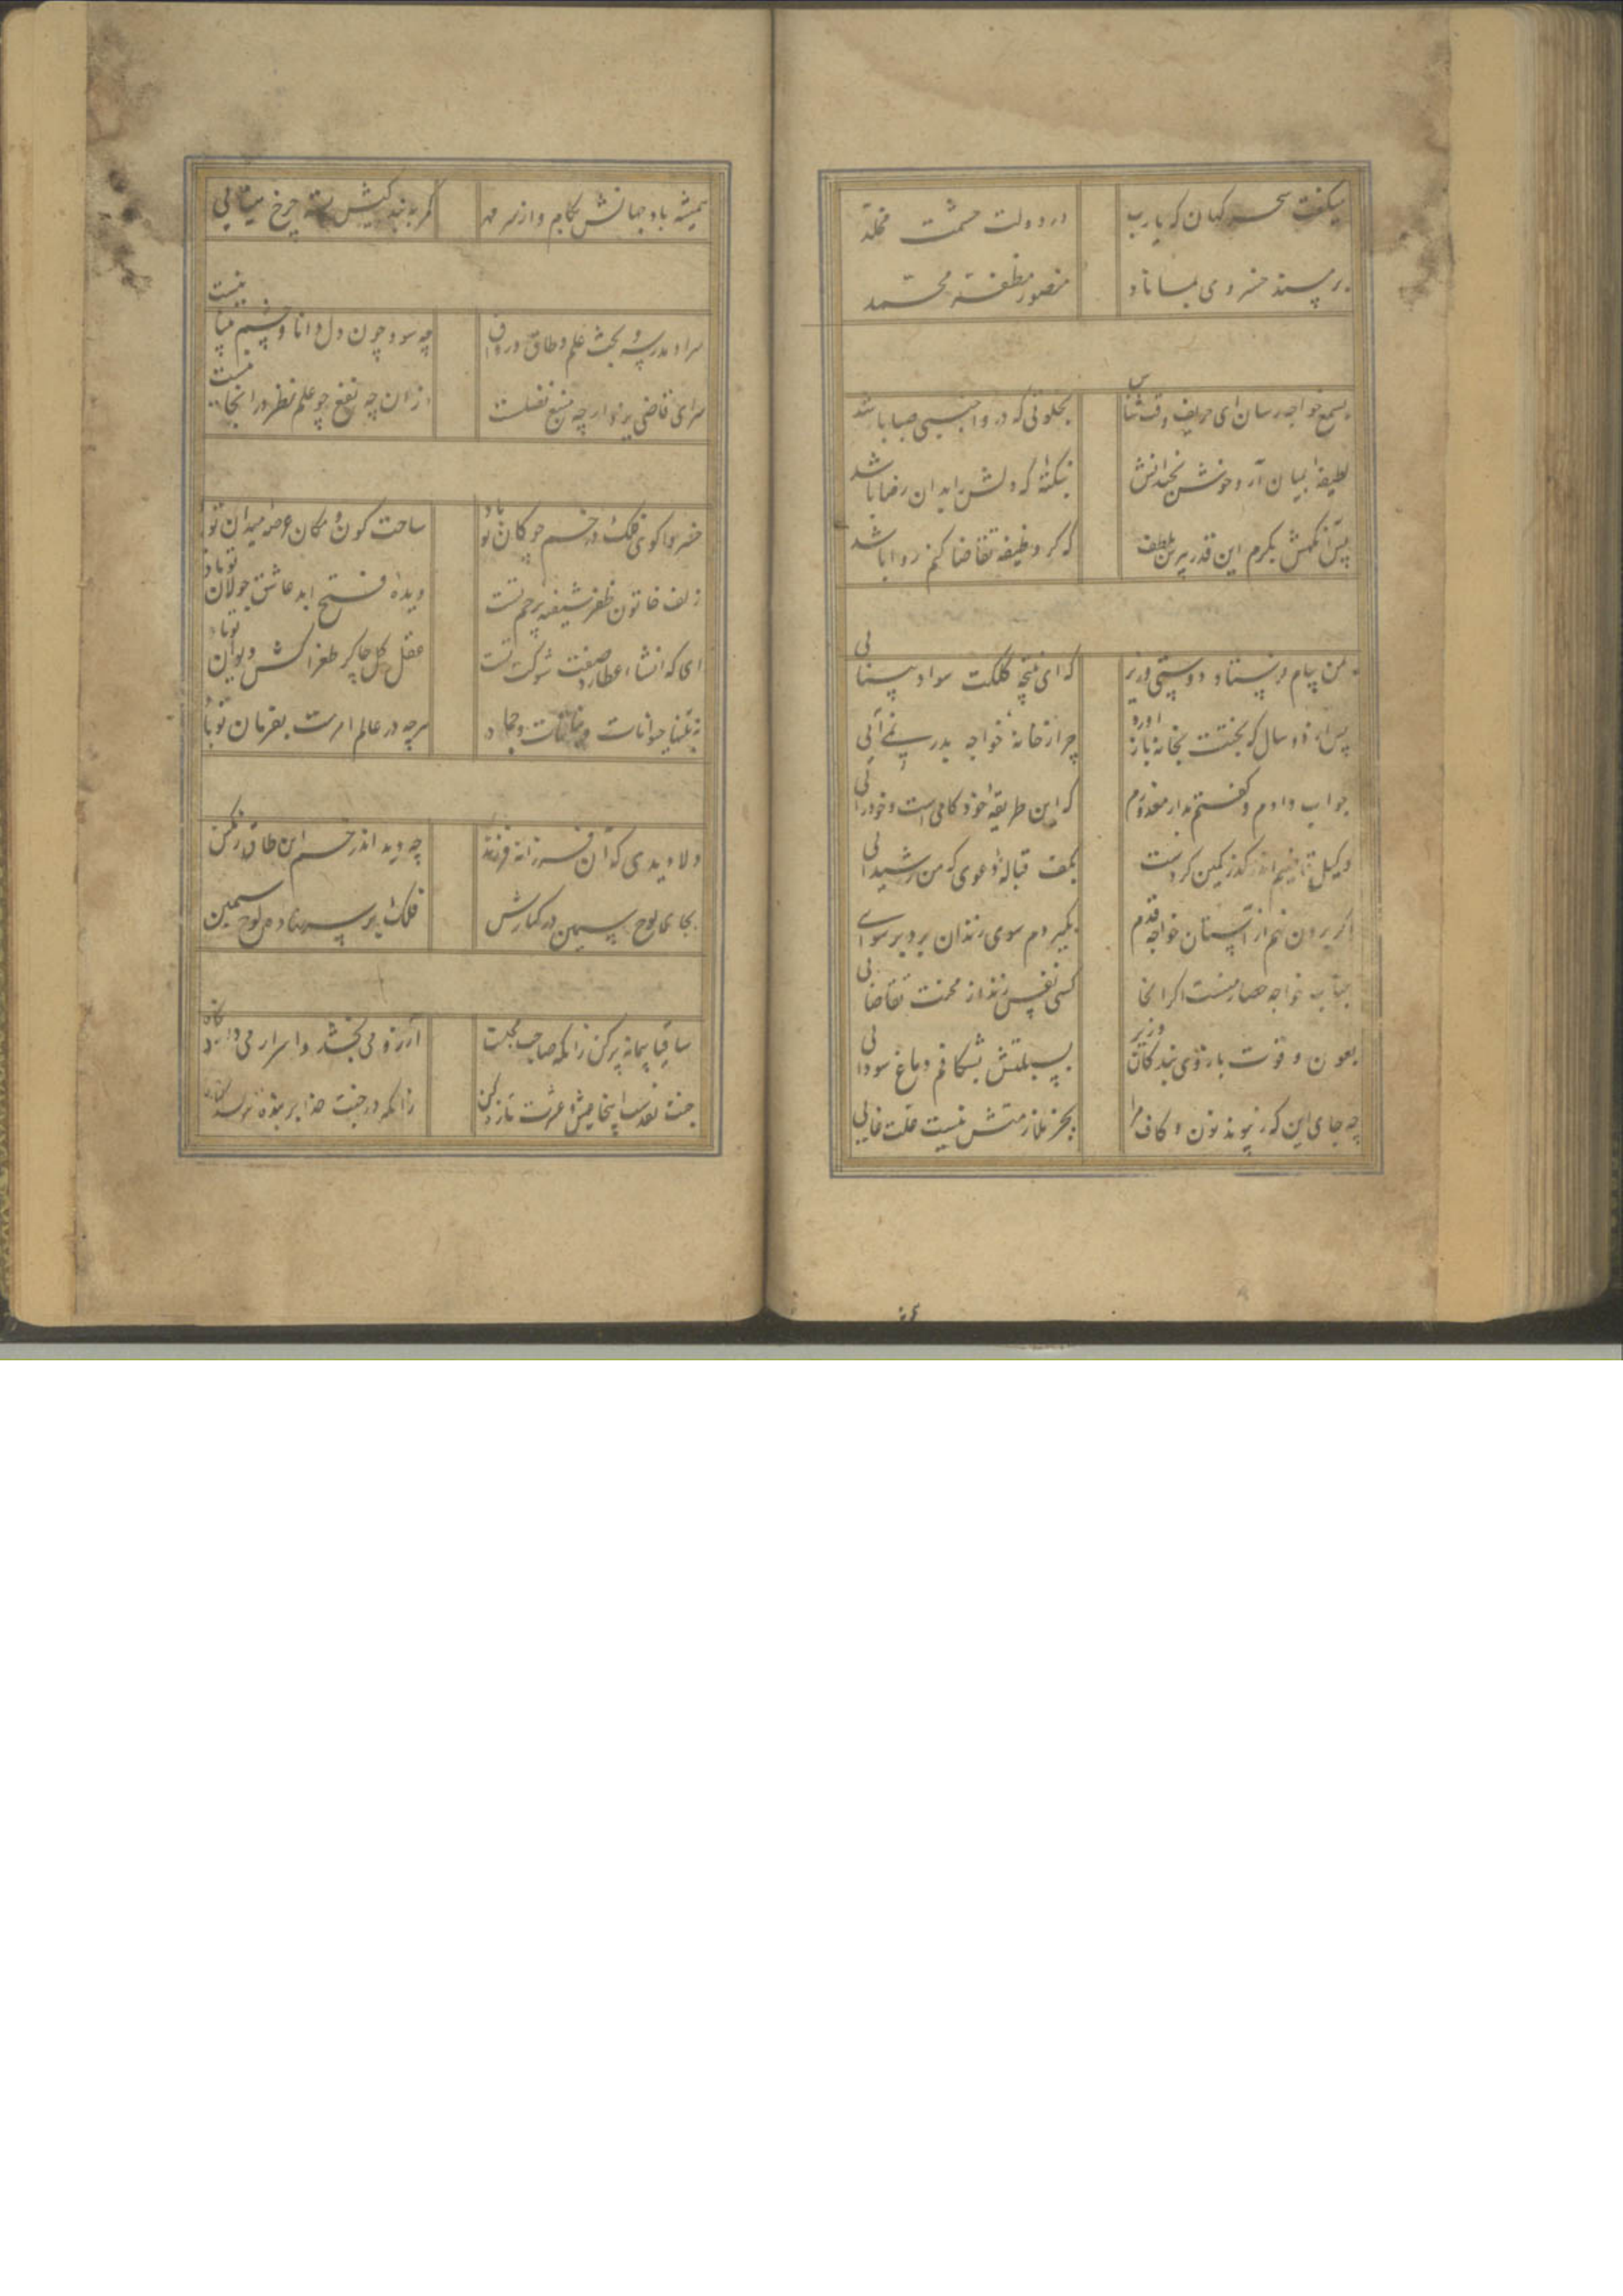 میگفت سحر کهان که یارب
در دولت حشمت مخلد
بر مسند خسروی بماناد
منصور مظفر محمد
بسمع خواجه رسان ای حریف وقت شناس
بخلوتی که درو اجنبی صبا باشد
لطیفه ابیان آر و خوش بخندانش
بنکتهٔ که دلش را بدان رضا باشد
پس آنکهش بکرم این قدر بپرس بلطف
که کر وظیفه تقاضا کنم روا باشد
بمن پیام فرستاد دوستی وزیر
که ای نتیجهٔ کلکت سواد بینایی
پس از دو سال که بختت بخانه باز آورد
چرا ز خانهٔ خواجه بدر نمی آیی
جواب دادم و کفتم بدار معذورم
که این طریقه خودکامی است و خودرایی
وکیل قاضیم اندر کذر کمین کردست
بکف قبالهٔ دعوی که من رشیدایی
اکر برون نهم از آستان خواجه قدم
بکیردم سوی زندان برد برسوایی
جناب خواجه حصار منست اکر اینجا
کسی نفس زند از محنت تقاضایی
بعون و قوت بازوی بندکان وزیر
بسیلیش بشکافم دماغ سودایی
چه جای این که ز پیوند نون و کاف مرا
بجز ملازمتش نیست علت غایی
همیشه باد جهانش بکام و از سر مهر
کمر به بندکیش بسته چرخ مینایی
سرا و مدرسه و بحث علم و طاق و رواق
چه سود چون دل دانا و چشم بینا نیست
سرای قاضی یزد ار چه منبع فضلست
از ان چه نفع چو علم نظر در انجا نیست
خسروا کوی فلک در خم چوکان تو باد
ساحت کون و مکان عرصه میدان تو باد
زلف خاتون ظفر شیفته پرچم تست
دیدهٔ فتح ابد عاشق جولان تو باد
ای که انشاء عطارد صفت شوکت تست
عقل کل چاکر طغراکش دیوان تو باد
نه بتنها حیوانات و نباتات و جماد
هرچه در عالم امرست بفرمان تو باد
دلا دیدی که آن فرزانه فرزند
چه دید اندر خم این طاق رنکین
بجای لوح سیمین در کنارش
فلک بر سر نهادش لوح سنکین
ساقیا پیمانه پر کن زانکه صاحب مجلست
آرزو می بخشد و اسرار می دارد نکاه
جنت نقدست اینجا عیش و عشرت تازه کن
زانکه در جنت خدا بر بنده ننویسد کناه